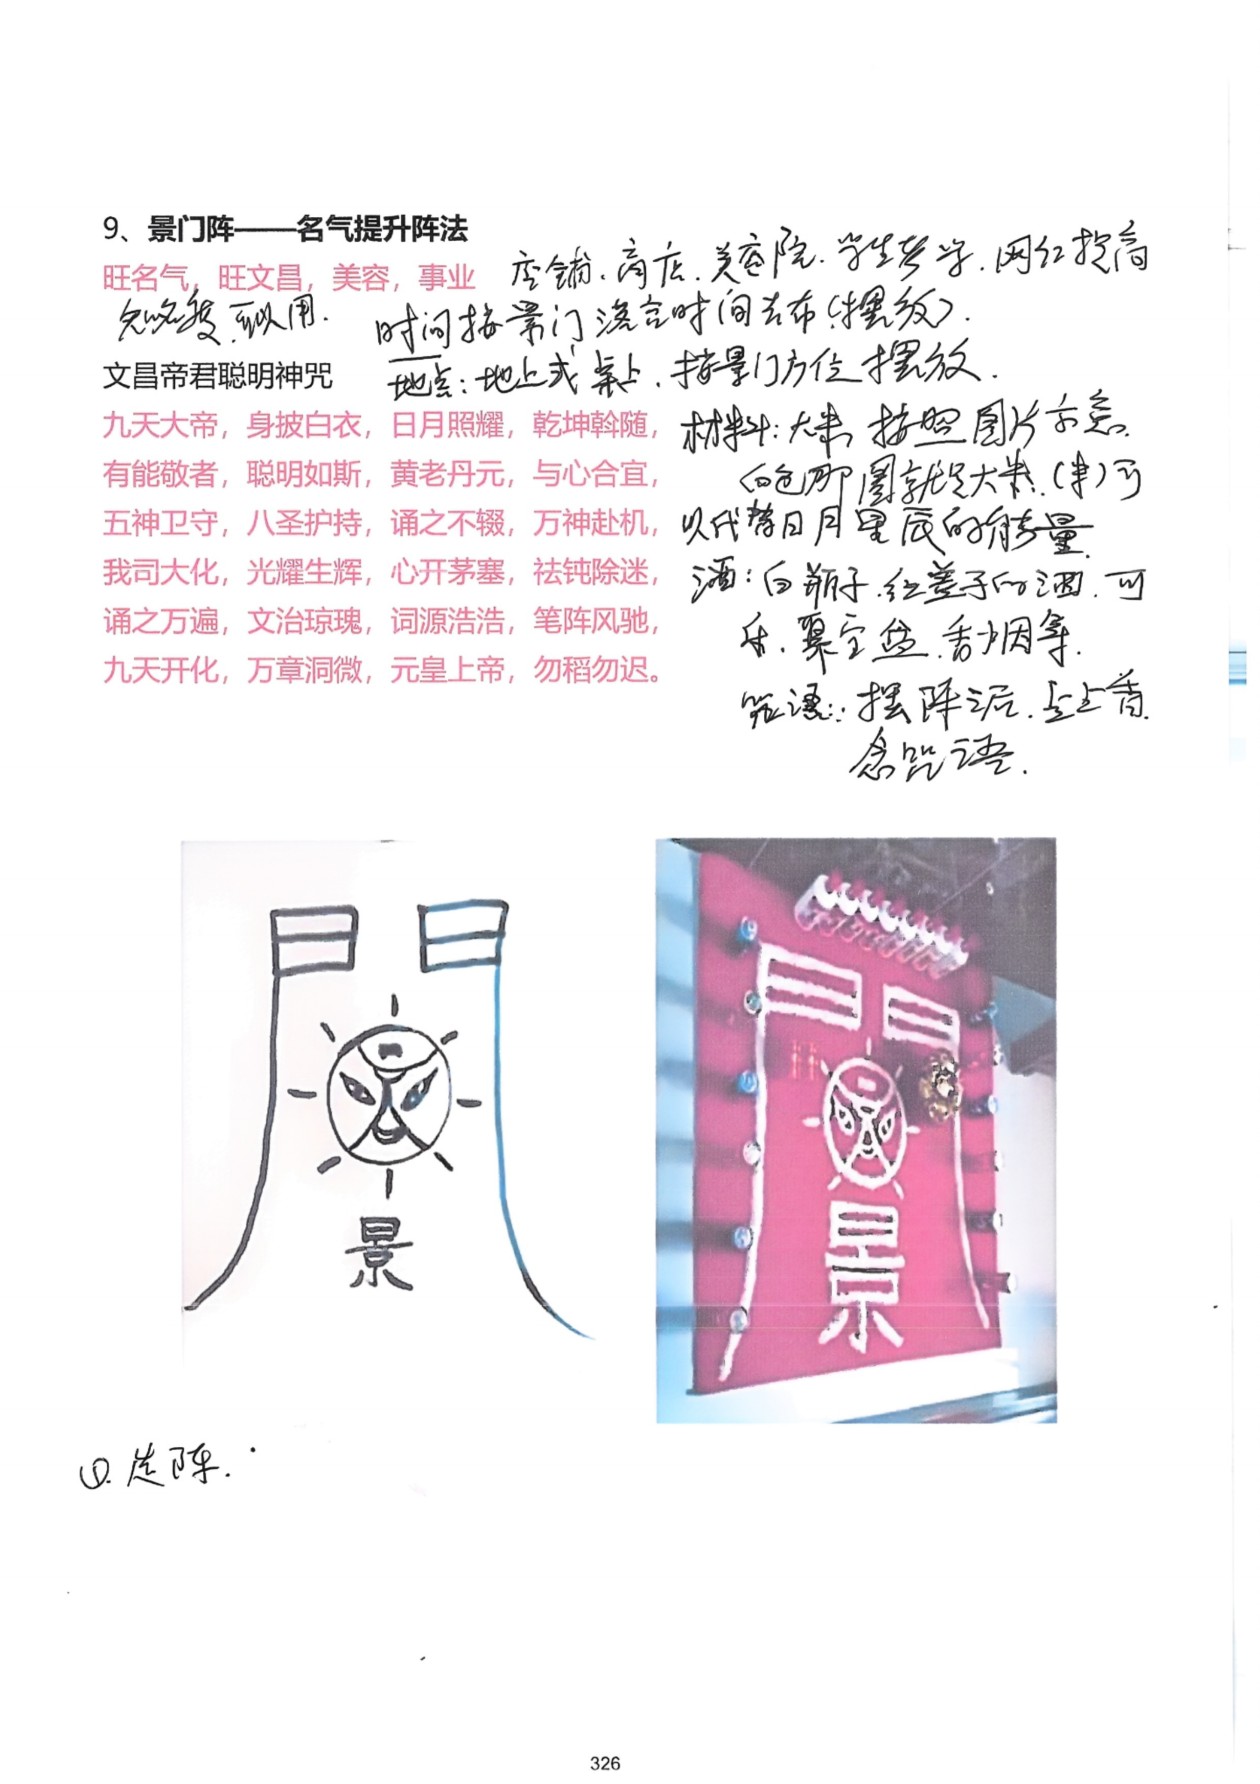 9、景门阵——名气提升阵法
旺名气，旺文昌，美容，事业
店铺、商店、美容院、学生考学、网红提高
知名度、可以用.
时间按景门落宫时间去布(摆放).
地点：地上或桌上、按景门方位摆放.
文昌帝君聪明神咒
九天大帝，身披白衣，日月照耀，乾坤斡随，
有能敬者，聪明如斯，黄老丹元，与心合宜，
五神卫守，八圣护持，诵之不辍，万神赴机，
我司大化，光耀生辉，心开茅塞，祛钝除迷，
诵之万遍，文治琼瑰，词源浩浩，笔阵风驰，
九天开化，万章洞微，元皇上帝，勿稻勿迟。
材料：大米 按照图片示意.
白色那圈就是大米.(米)可
以代替日月星辰的能量
酒：白瓶子.红盖子的酒.可
乐.聚宝盆.香烟等.
咒语：摆阵后.点上香.
念咒语.
景
景
阵.
326